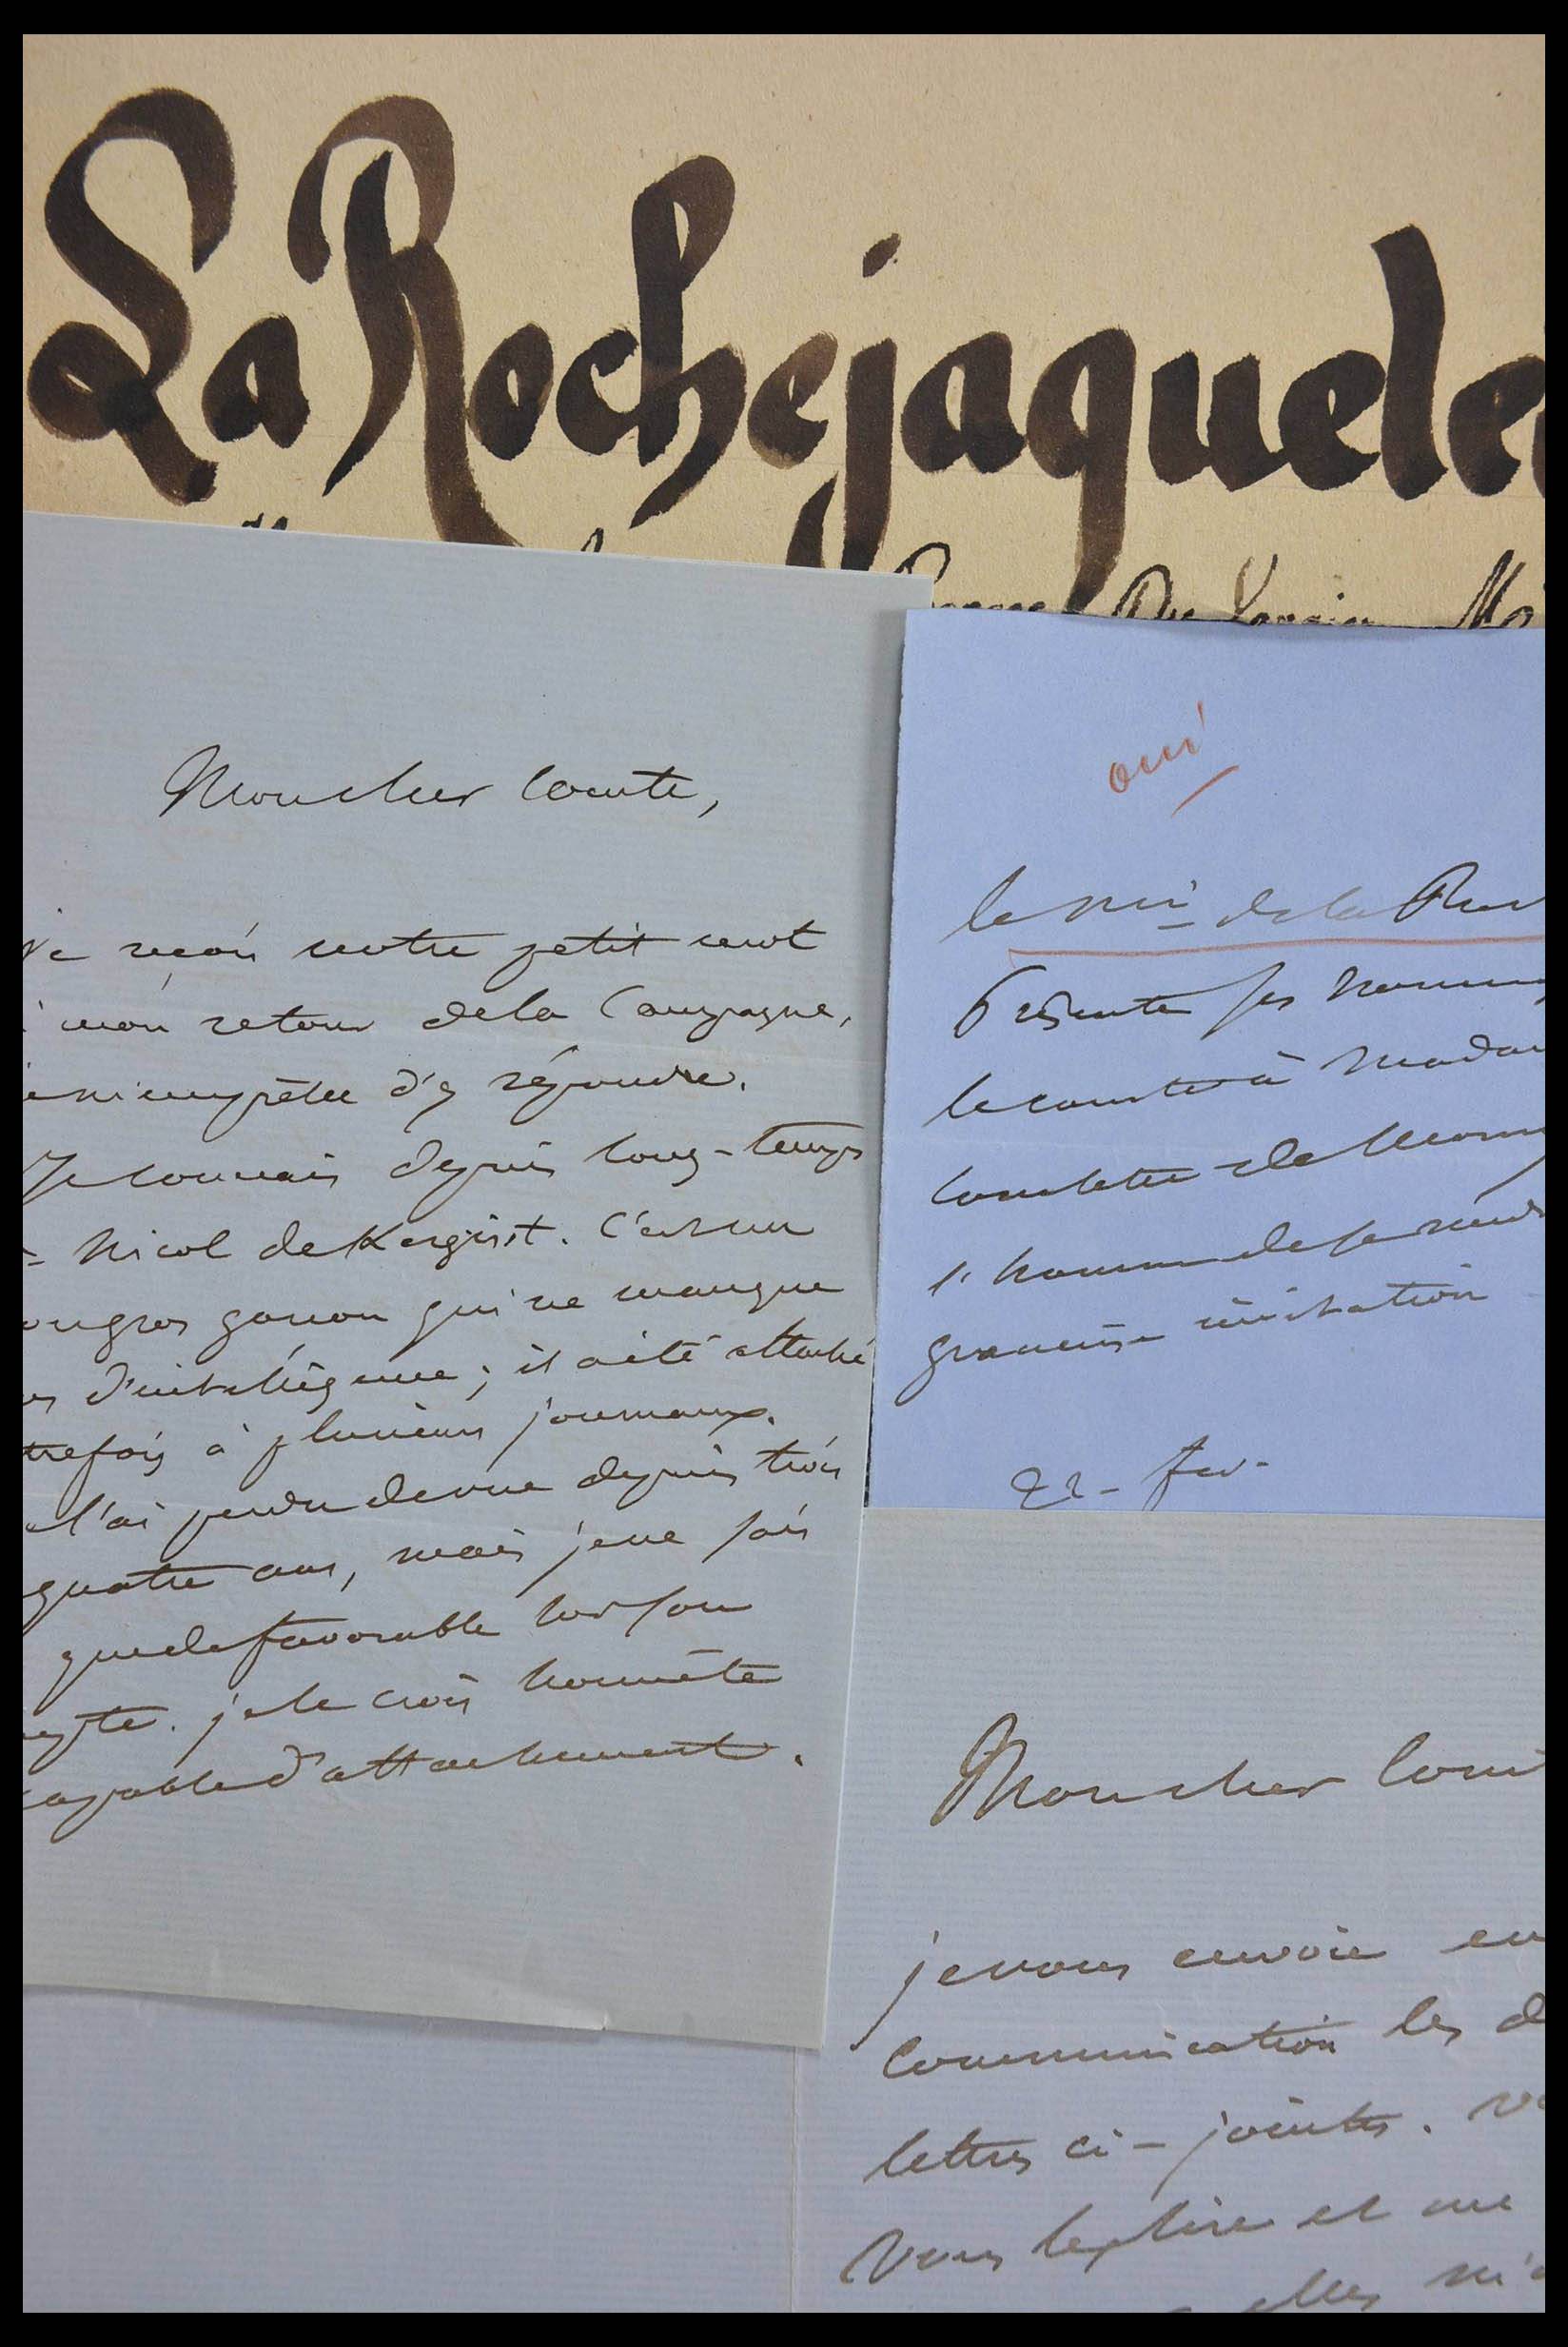 La Rochejaquele
Mon cher Comte,
Je reçois votre petit mot
mon retour de la Campagne,
m'empresse d'y répondre.
Je connais depuis long-temps
Nicol de Kergrist. C'est un
gros garçon qui ne manque
d'intelligence; il a été attaché
trefois à plusieurs journaux.
l'ai perdu de vue depuis trois
quatre ans, mais je ne sais
que de favorable sur son
pte. je le crois honnête
capable d'attachement.
oui
le mis de la Roc
Présente ses homm
le comte à Madam
Comtesse de Morny
l'honneur de se rend
gracieuse invitation
22 - fev.
Mon cher Comt
je vous envoie en
communication les d
lettres ci-jointes.
Vous les lire et me
elles m'